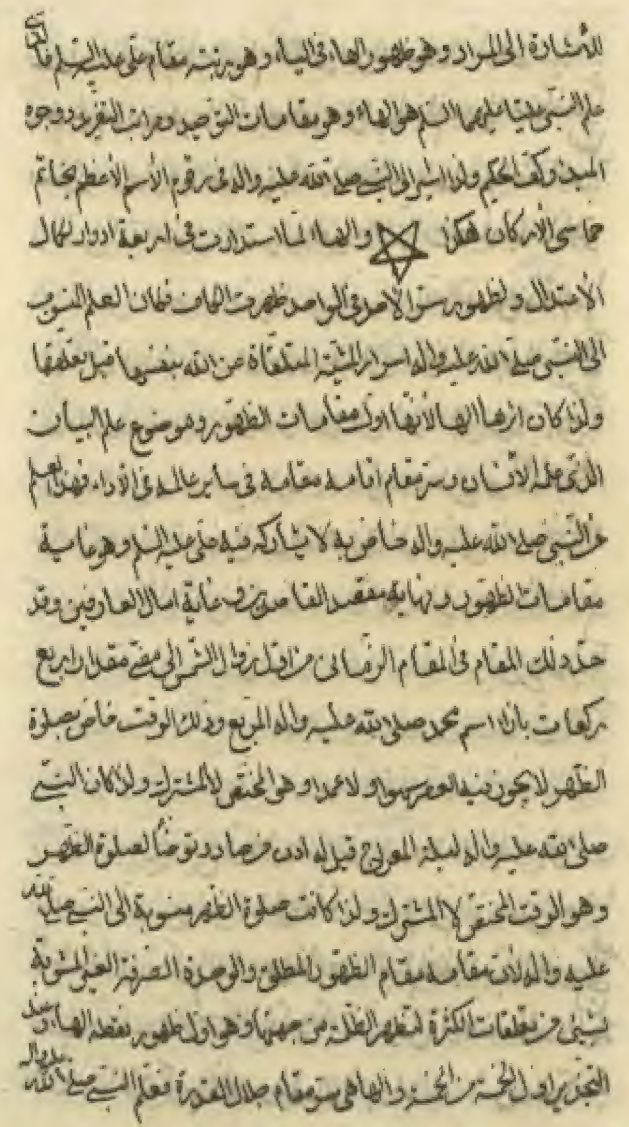 للاشارة الى المراد وهو ظهور الهاء فى الياء وهو مرتبة مقام على عليه السلم
علم النبى عليا عليهما السلم هو الهاء وهو مقامات التوحيد ومراتب التفريد ووجوه
المبين وكف الحكيم ولذا اشير الى النبى صلى الله عليه واله فى رقوم الاسم الأعظم بخاتم
خماسى الاركان هكذا والهاء لما استدارت فى اربعة ادوار لكمال
الاعتدال ولظهور سر الاحد فى الواحد ظهرت الكاف فكان العلم المنسوب
الى النبى صلى الله عليه واله اسرار المشية المتلقاة من الله بنفسها قبل تعلقها
ولذا كان الهاء لأنها اول مقامات الظهور وهو موضوع علم البيان
الذى علمه الانسان وسر مقام اقامه مقامه فى ساير عالمه فى الاداء فهذا العلم
من النبى صلى الله عليه واله خاص به لا يشاركه فيه على عليه السلم وهو غاية
مقامات الظهور ونهاية مقصد القاصدين وغاية امال العارفين وقد
حدد ذلك المقام فى المقام الزمانى من اول زوال الشمس الى مضى مقدار اربع
ركعات بازاء اسم محمد صلى الله عليه واله المربع وذلك الوقت خاص بصلوة
الظهر لا يجوز فيه العصر سهوا ولا عمدا وهو المختص لا المشترك ولذا كان النبى
صلى الله عليه واله ليلة المعراج قيل له ادن من صاد وتوضأ لصلوة الظهر
وهو الوقت المختص لا المشترك ولذا كانت صلوة الظهر منسوبة الى النبى صلى الله
عليه واله لان مقامه مقام الظهور المطلق والوحدة الصرفة الغير المشوبة
بشىء من تعلقات الكثرة لتظهر الظلة من جهتها وهو اول ظهور نقطة الهاء
اول الخمسة من الخمسة والهاء هى سر مقام جلال القدرة فعلم النبى صلى الله عليه واله